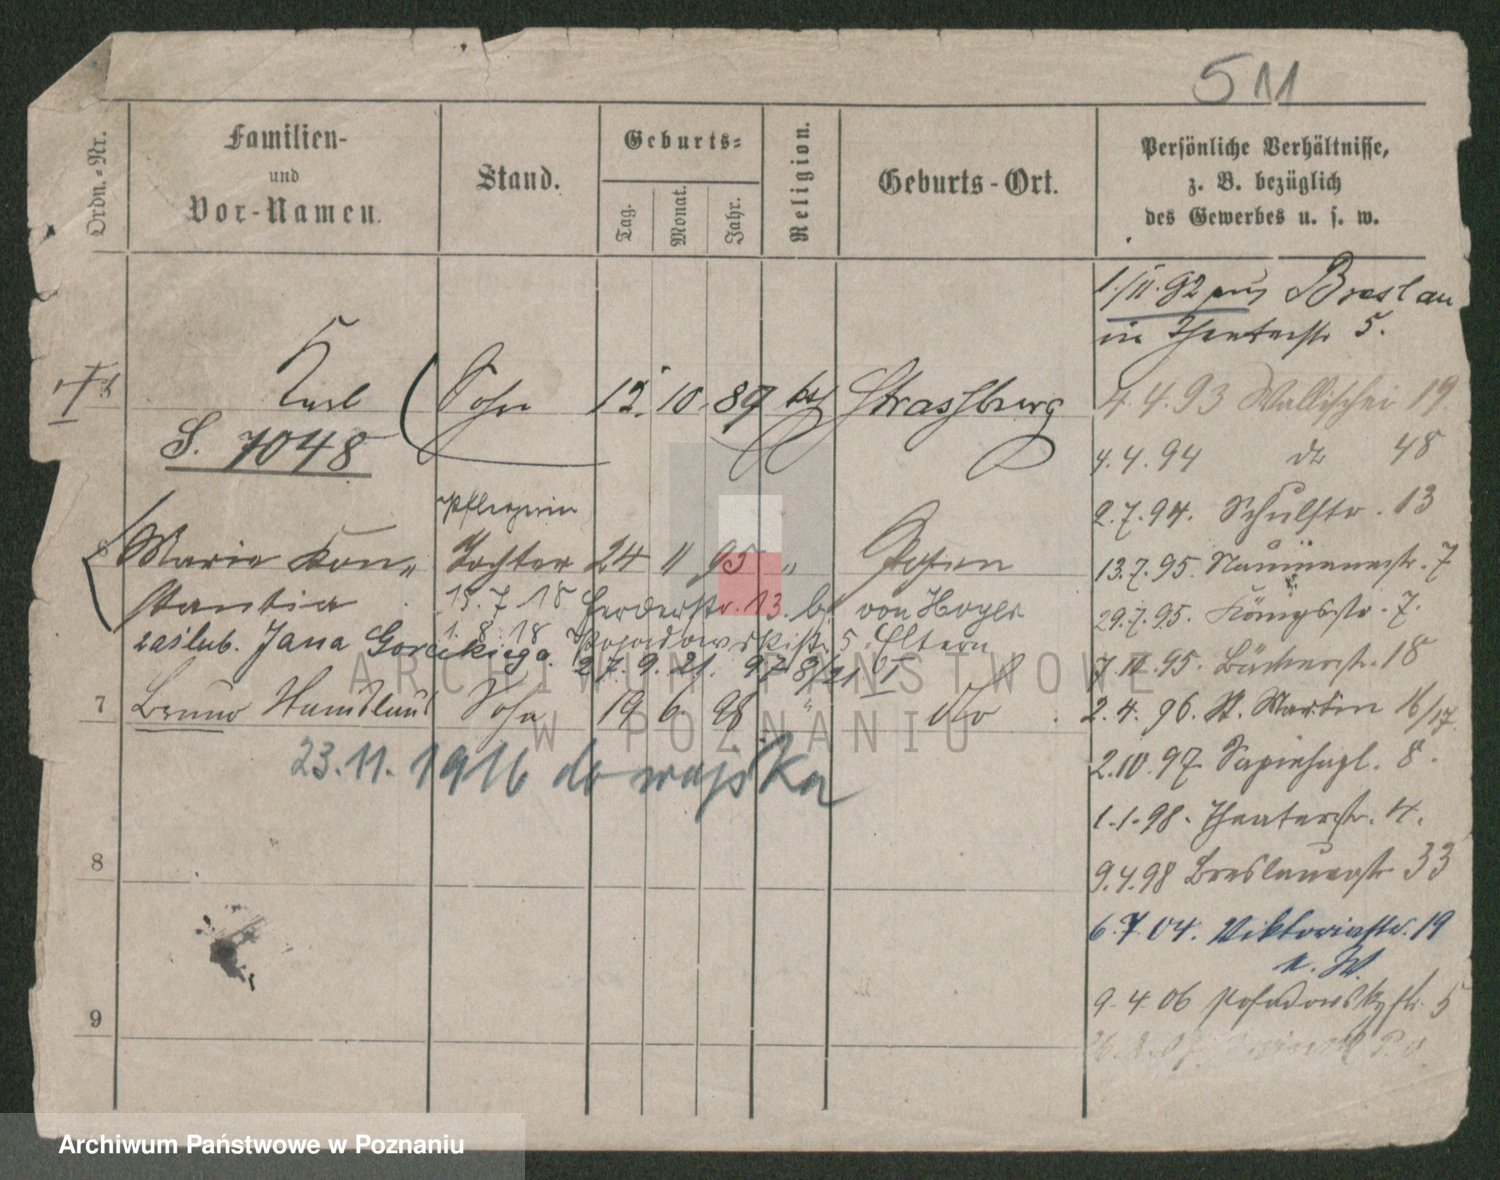 511
Ordn.-Nr.
Familien-
und
Vor-Namen.
Stand.
Geburts-
Tag.
Monat.
Jahr.
Religion.
Geburts-Ort.
Persönliche Verhältnisse,
z. B. bezüglich
des Gewerbes u. s. w.
1./11.92 aus Breslau
in Theaterstr 5.
Karl Sohn 12. 10. 89 Strassburg
S. 7048
4.4.93 Wallischei 19
4.4.94 do 48
2.7.94. Schulstr. 13
Pflegerin
6 Marie Kon- Tochter 24 11 95 " Posen
stantia
13.7.95. Naumannstr. 7
15.7 18 Herderstr. 13. b/ von Hoyer
29.7.95. Königsstr. 7.
zaślub. Jana Goreckiego.
1.8.18 Posadowskistr. 5. Eltern
27.9.21. 97 8/21 I
7.10.95. Bäckerstr. 18
7 Bruno Stanislaus Sohn 19 6. 98 " do
2.4.96. St. Martin 16/17
23.11.1916 do wojska
2.10.97. Sapiehapl. 8.
1.1.98. Theaterstr. 4.
8
9.4.98 Breslauerstr 33
6.7 04. Viktoriastr. 19
n. W.
9.4 06 Posadowskystr. 5
9
ARCHIWUM PAŃSTWOWE
W POZNANIU
Archiwum Państwowe w Poznaniu